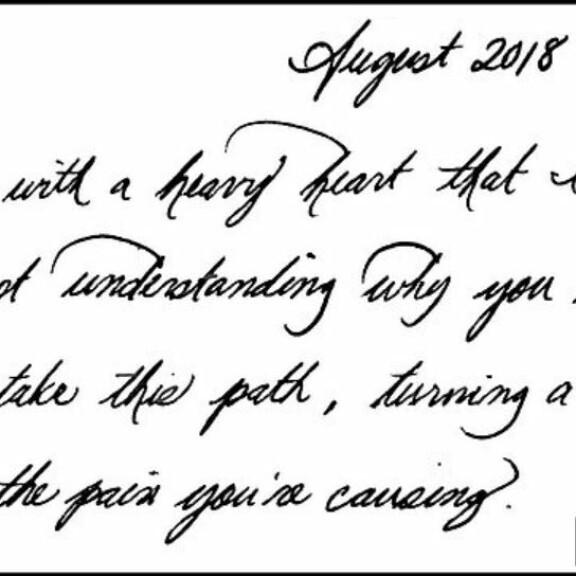 August 2018
with a heavy heart that
understanding why you
take this path, turning a
the pain you're causing.